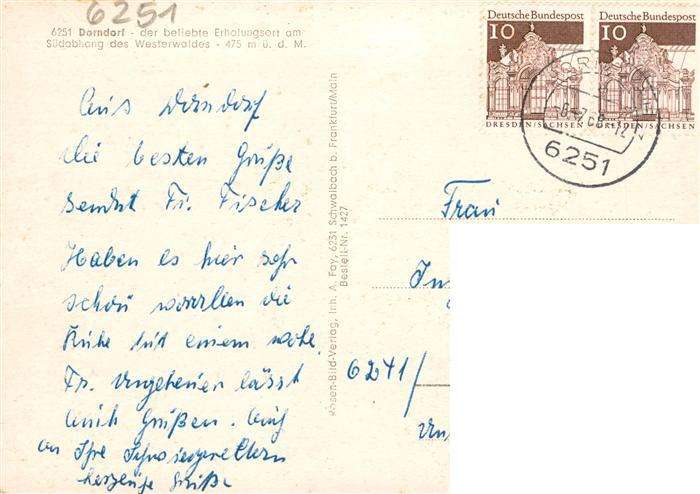 6251
6251 Dorndorf - der beliebte Erholungsort am
Südabhang des Westerwaldes - 475 m ü. d. M.
Aus Dorndorf
die besten Grüße
sendet Fr. Fischer
Haben es hier sehr
schön die
Ruhe tut einem wohl
Fr. Ungeheuer lässt
auch Grüßen. Auch
an Ihre Schwiegereltern
herzliche Grüße
Rosen-Bild-Verlag, Inh. A. Fay, 6231 Schwalbach b. Frankfurt/Main
Bestell-Nr. 1427
Deutsche Bundespost
10
DRESDEN/SACHSEN
Deutsche Bundespost
10
DRESDEN/SACHSEN
6251
Frau
6241/